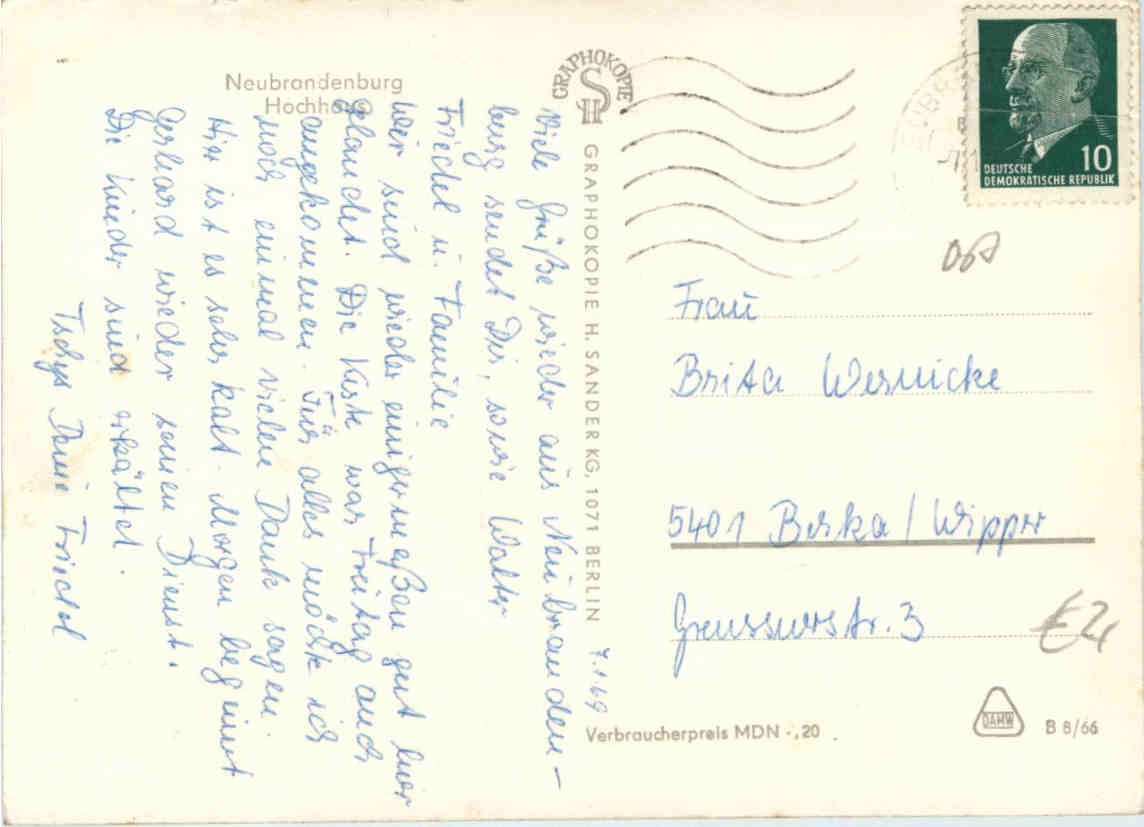 Neubrandenburg
Hochhaus
GRAPHOKOPIE
S
H
GRAPHOKOPIE H. SANDER KG, 1071 BERLIN
7.1.69
Viele Grüße wieder aus Neubranden-
burg sendet Dir, sowie Walter
Friedel u. Familie
Wir sind wieder einigermaßen gut hier
gelandet. Die Kiste war Freitag auch
angekommen. Für alles möcht ich
noch einmal vielen Dank sagen.
Hier ist es sehr kalt. Morgen beginnt
Gerhard wieder seinen Dienst.
Die Kinder sind erkältet.
Tschüs Deine Friedel
10
DEUTSCHE
DEMOKRATISCHE REPUBLIK
Frau
Brita Wernicke
5401 Berka / Wipper
Greussnerstr. 3
€2
Verbraucherpreis MDN -,20
DAMW
B 8/66